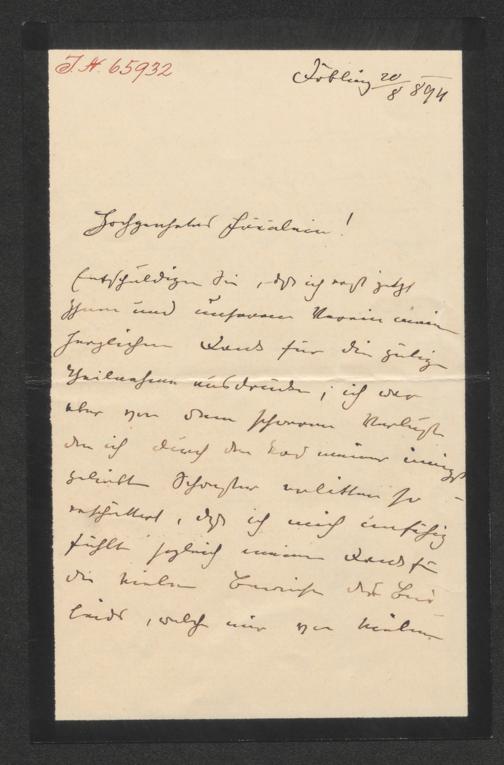 I.N. 65932
Döbling 20/8 894
Hochgeehrtes Fräulein!
Entschuldigen Sie, daß ich erst jetzt
Ihnen und unserem Verein meinen
herzlichen Dank für die gütige
Theilnahme ausdrücke; ich war
aber von dem schweren Verluste
den ich durch den Tod meiner innigst
geliebten Schwester erlitten so
erschüttert, daß ich mich unfähig
fühlte sogleich meinen Dank für
die vielen Beweise des Bei-
leids, welche mir von vielen